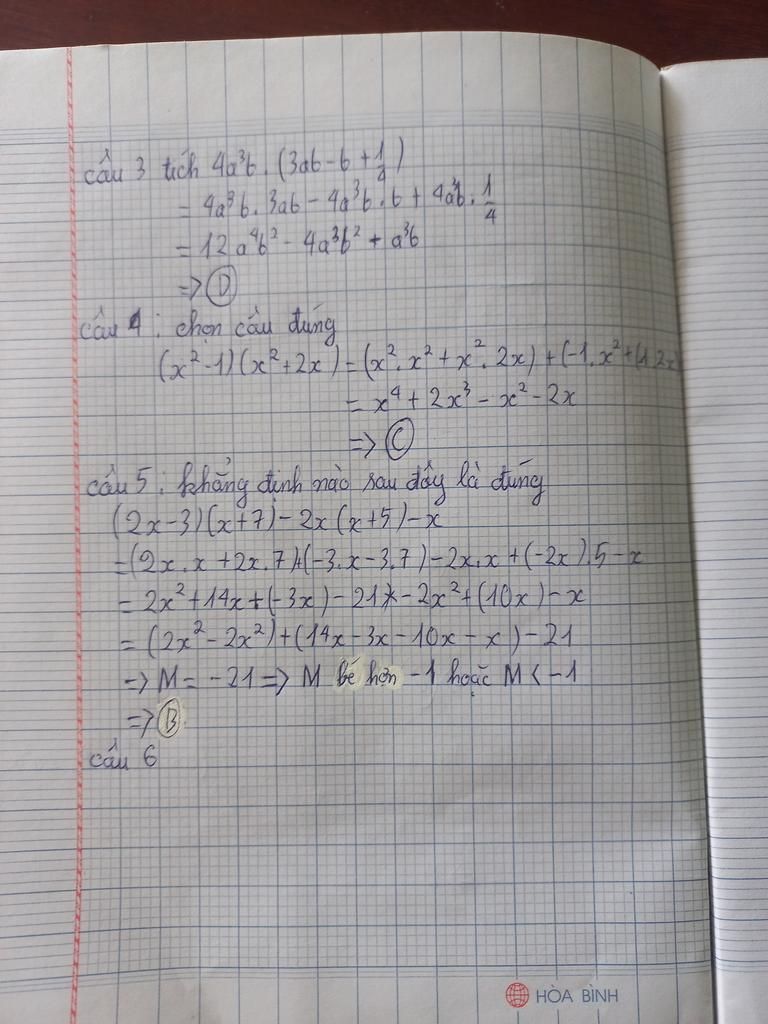 câu 3 tích 4a³b . (3ab - b + 1/4)
= 4a³b . 3ab - 4a³b . b + 4a³b . 1/4
= 12a⁴b² - 4a³b² + a³b
=> D
câu 4 : chọn câu đúng
(x² - 1)(x² + 2x) = (x² . x² + x² . 2x) + (-1 . x² + (1 . 2x
= x⁴ + 2x³ - x² - 2x
=> C
câu 5 : khẳng định nào sau đây là đúng
(2x - 3)(x + 7) - 2x(x + 5) - x
= (2x . x + 2x . 7) + (-3 . x - 3 . 7) - 2x . x + (-2x) . 5 - x
= 2x² + 14x + (-3x) - 21 - 2x² + (10x) - x
= (2x² - 2x²) + (14x - 3x - 10x - x) - 21
=> M = -21 => M bé hơn -1 hoặc M < -1
=> B
câu 6
HÒA BÌNH